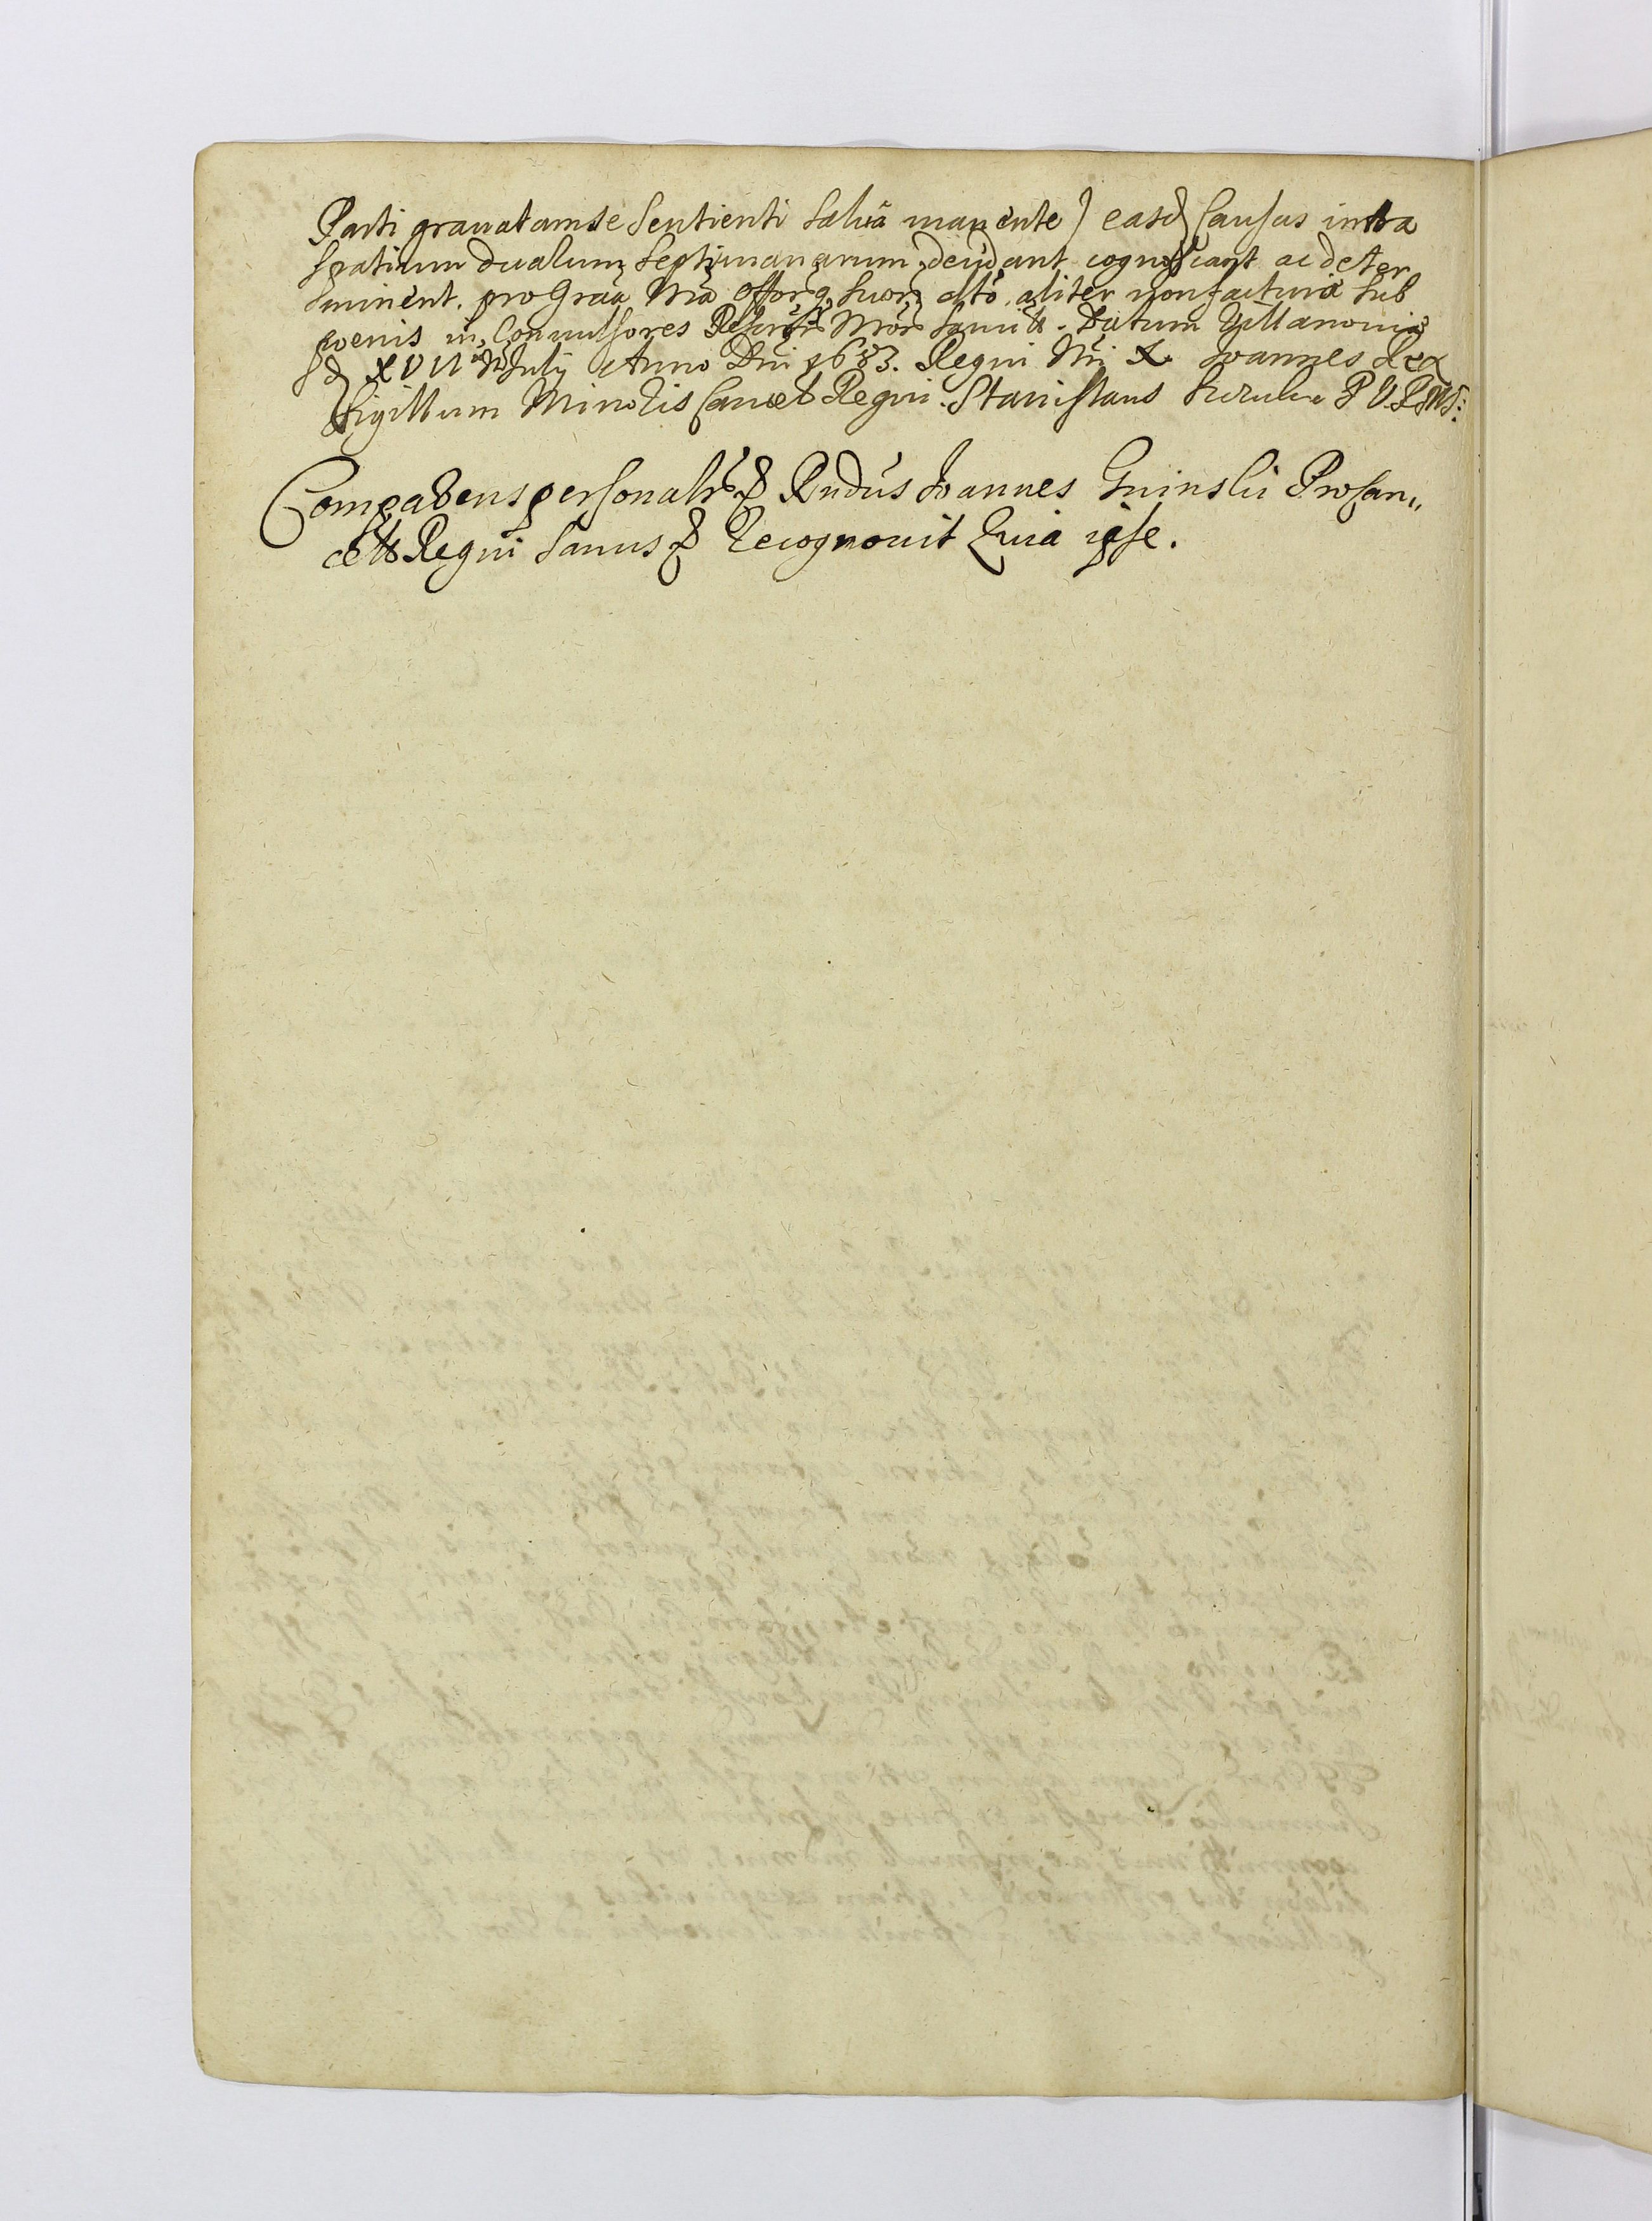 Parti gravatam se sentienti salva manente) easd Causas intra
spatium dualum septimanarum decidant cognoscant ac deter
minent. pro Graa Nra offorq suor dto aliter non facturi sub
poenis in Convulsores Rescrtor Nror sancit. Datum Villanoviæ
d XVII July Anno Dni 1683. Regni Nri X. Joannes Rex
Sigillum Minoris Cancel Regni. Stanislaus
Comparens personalr Rndus Joannes Gninski Procan„
cells Regni sanus Recognovit Quia ipse.